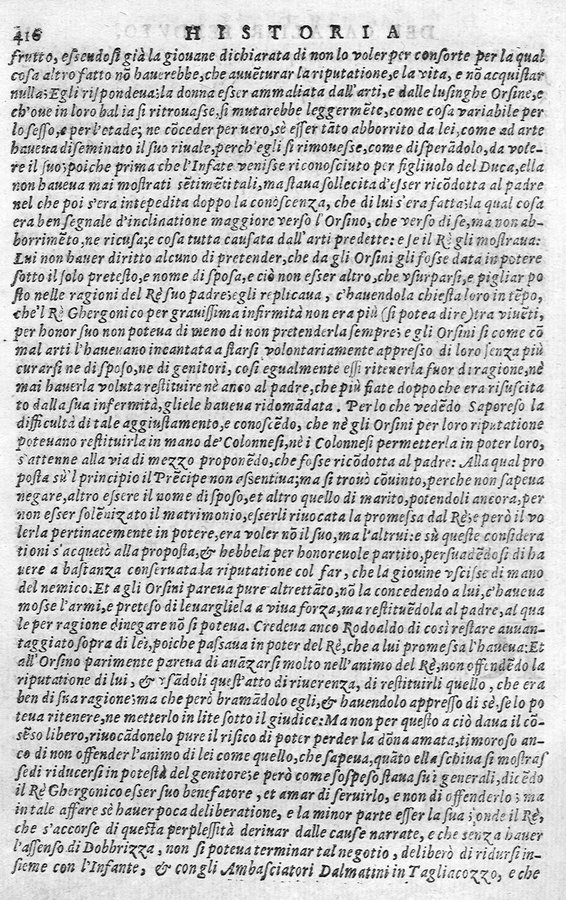 416 HISTORIA
frutto, essendosi già la giouane dichiarata di non lo voler per consorte per la qual
cosa altro fatto nõ hauerebbe, che auuẽturar la riputatione, e la vita, e nõ acquistar
nulla; Egli rispondeua: la donna esser ammaliata dall'arti, e dalle lusinghe Orsine, e
ch'oue in loro balia si ritrouasse, si mutarebbe leggermẽte, come cosa variabile per
lo sesso, e per l'etade; ne cõceder per uero, sè esser tãto abborrito da lei, come ad arte
haueua diseminato il suo riuale, perch'egli si rimouesse, come disperãdolo, da vole-
re il suo; poiche prima che l'Infãte venisse riconosciuto per figliuolo del Duca, ella
non haueua mai mostrati sẽtimẽti tali, ma staua sollecita d'esser ricõdotta al padre
nel che poi s'era intepedita doppo la conoscenza, che di lui s'era fatta: la qual cosa
era ben segnale d'inclinatione maggiore verso l'Orsino, che verso di se, ma non ab-
borrimẽto, ne ricusa; e cosa tutta causata dall'arti predette: e se il Rè gli mostraua:
Lui non hauer diritto alcuno di pretender, che da gli Orsini gli fosse data in potere
sotto il solo pretesto, e nome di sposa, e ciò non esser altro, che vsurparsi, e pigliar po
sto nelle ragioni del Rè suo padre; egli replicaua, c'hauendola chiesta loro in tẽpo,
che'l Rè Ghergonico per grauissima infirmità non era più (si potea dire) tra viuẽti,
per honor suo non poteua di meno di non pretenderla sempre; e gli Orsini si come cõ
mal arti l'haueuano incantata a starsi volontariamente appresso di loro senza più
curarsi ne di sposo, ne di genitori, cosi egualmente essi ritenerla fuor di ragione, nè
mai hauerla voluta restituire nè anco al padre, che più fiate doppo che era risuscita
to dalla sua infermità, gliele haueua ridomãdata. Perlo che vedẽdo Saporeso la
difficultà di tale aggiustamento, e conoscẽdo, che nè gli Orsini per loro riputatione
poteuano restituirla in mano de' Colonnesi, nè i Colonnesi permetterla in poter loro,
s'attenne alla via di mezzo proponẽdo, che fosse ricõdotta al padre: Alla qual pro
posta sù'l principio il Prẽcipe non assentiua; ma si trouò cõuinto, perche non sapeua
negare, altro essere il nome di sposo, et altro quello di marito, potendoli ancora, per
non esser solẽnizato il matrimonio, esserli riuocata la promessa dal Rè; e però il vo
lerla pertinacemente in potere, era voler nõ il suo, ma l'altrui: e sù queste considera
tioni s'acquetò alla proposta, & hebbela per honoreuole partito, persuadẽdosi di ha
uere a bastanza conseruata la riputatione col far, che la giouine vscisse di mano
del nemico. Et a gli Orsini pareua pure altrettãto, nõ la concedendo a lui, c'haueua
mosse l'armi, e preteso di leuargliela a viua forza, ma restituẽdola al padre, al qua
le per ragione dinegare nõ si poteua. Credeua anco Rodoaldo di così restare auuan-
taggiato sopra di lei, poiche passaua in poter del Rè, che a lui promessa l'haueua: Et
all'Orsino parimente pareua di auãzarsi molto nell'animo del Rè, non offendẽdo la
riputatione di lui, & vsãdoli quest'atto di riuerenza, di restituirli quello, che era
ben di sua ragione; ma che però bramãdolo egli, & hauendolo appresso di sè, se lo po
teua ritenere, ne metterlo in lite sotto il giudice: Ma non per questo a ciò daua il cõ-
sẽso libero, riuocãdonelo pure il risico di poter perder la dõna amata, timoroso an-
co di non offender l'animo di lei come quello, che sapeua, quãto ella schiua si mostras
se di ridursi in potestà del genitore; e però come sospeso staua sui generali, dicẽdo
il Rè Ghergonico esser suo benefatore, et amar di seruirlo, e non di offenderlo; ma
in tale affare sè hauer poca deliberatione, e la minor parte esser la sua; onde il Rè,
che s'accorse di questa perplessità deriuar dalle cause narrate, e che senza hauer
l'assenso di Dobbrizza, non si poteua terminar tal negotio, deliberò di ridursi in-
sieme con l'Infante, & con gli Ambasciatori Dalmatini in Tagliacozzo, e che